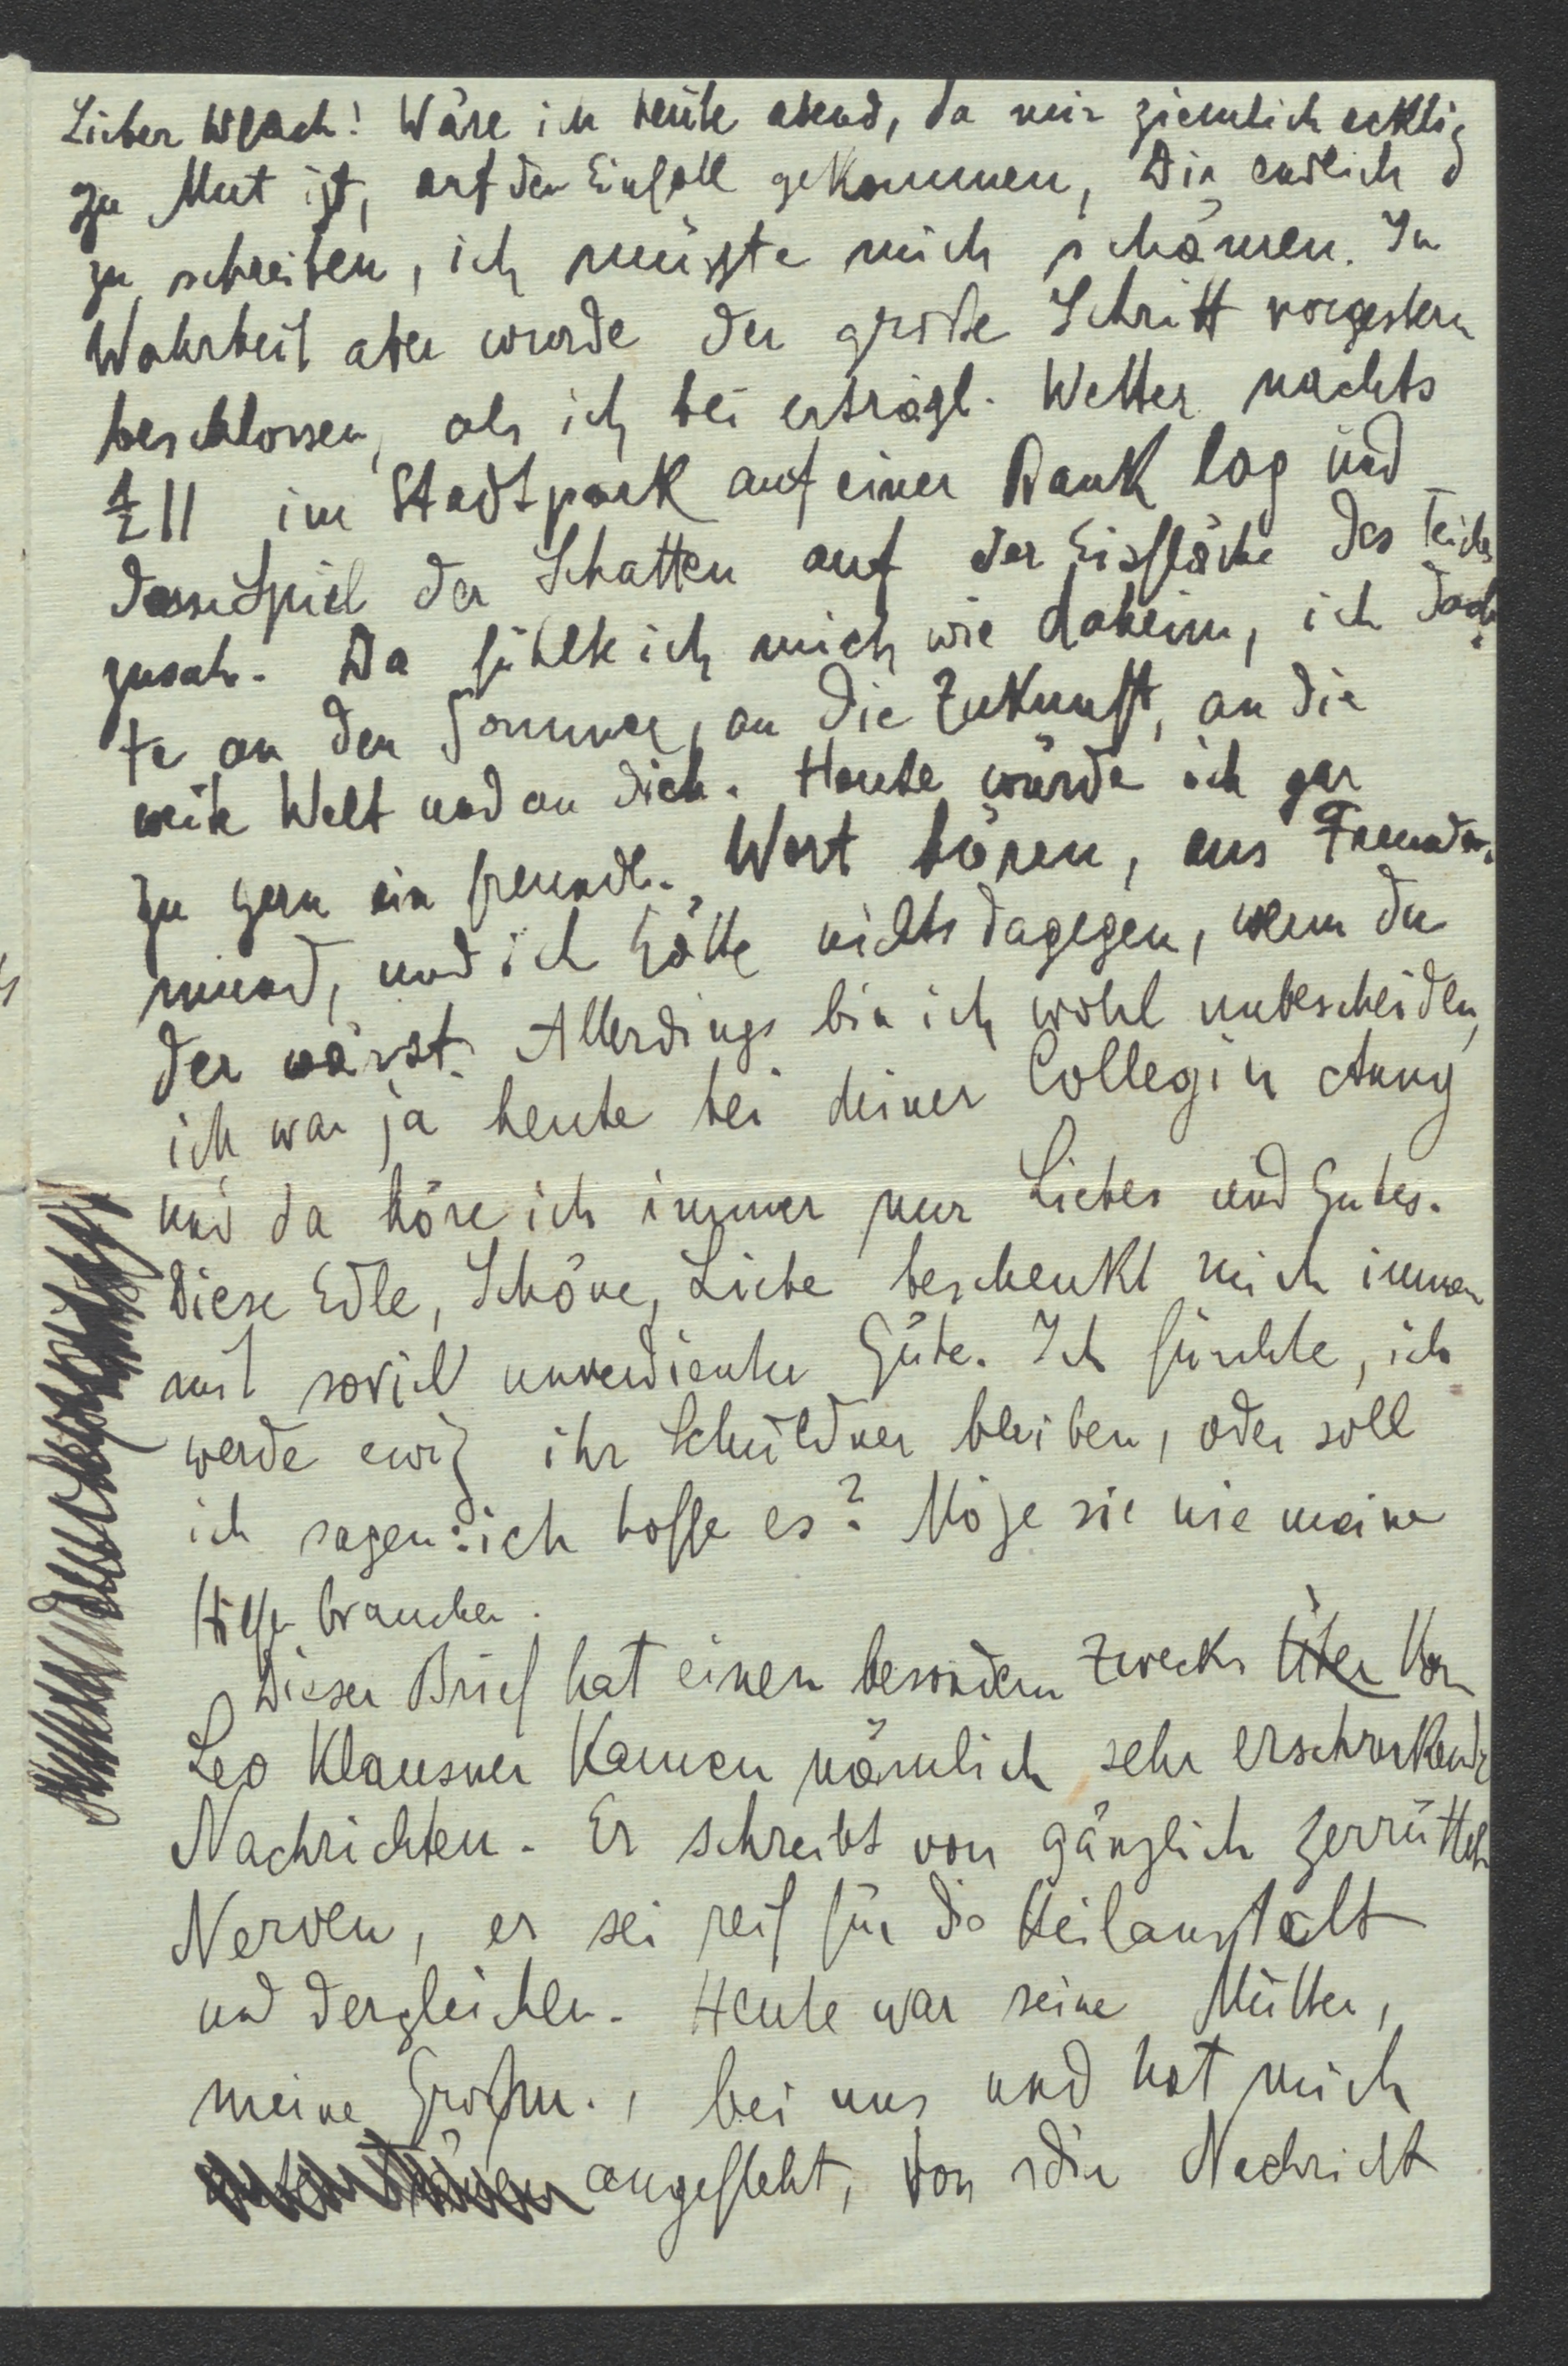 Lieber Wlach! Wäre ich heute abend, da mir ziemlich ecklig
zu Mut ist, auf den Einfall gekommen, Dir endlich
zu schreiben, ich müsste mich schämen. In
Wahrheit aber wurde der große Schritt vorgestern
beschlossen, als ich bei erträgl. Wetter nachts
½ 11 im Stadtpark auf einer Bank lag und
dem Spiel der Schatten auf der Eisfläche des Teichs
zusah. Da fühlte ich mich wie daheim, ich dach-
te an den Sommer, an die Zukunft, an die
weite Welt und an dich. Heute würde ich gar
zu gern ein freundl. Wort hören, aus Freundes-
mund, und ich hätte nichts dagegen, wenn du
der wärst. Allerdings bin ich wohl unbescheiden,
ich war ja heute bei deiner Collegin Anny
und da höre ich immer nur Liebes und Gutes.
Diese Edle, Schöne, Liebe beschenkt mich immer
mit soviel unverdienter Güte. Ich fürchte, ich
werde ewig ihr Schuldner bleiben, oder soll
ich sagen: ich hoffe es? Möge sie nie meine
Hilfe brauchen.
Dieser Brief hat einen besondern Zweck. Über Von
Leo Klausner kamen nämlich sehr erschreckende
Nachrichten. Er schreibt von gänzlich zerrütteten
Nerven, er sei reif für die Heilanstalt
und dergleichen. Heute war seine Mutter,
meine Großm., bei uns und hat mich
angefleht, von dir Nachricht